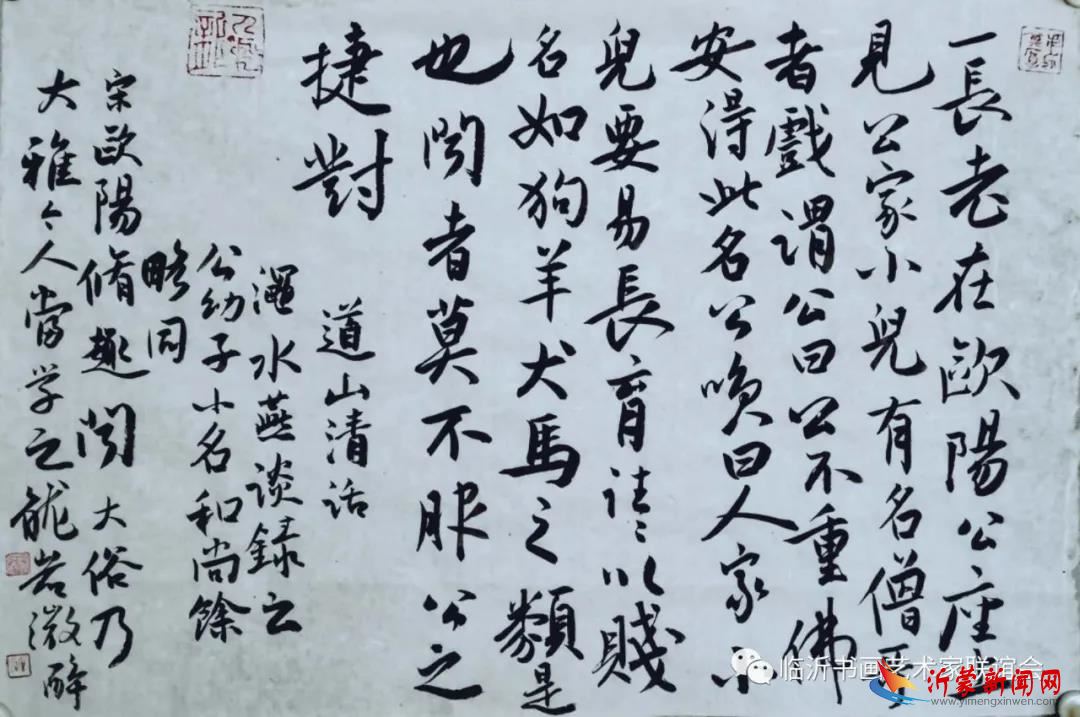 一長老在歐陽公座上
見公家小兒有名僧哥
者戲謂公曰公不重佛
安得此名公笑曰人家小
兒要易長育往〻以賤
名如狗羊犬馬之類是
也聞者莫不服公之
捷對
道山清話
澠水燕談錄云
公幼子小名和尚餘
略同
宋歐陽脩趣聞大俗乃
大雅今人當学之龍岩微醉
临沂书画艺术家联谊会
沂蒙新闻网
www.yimengxinwen.com